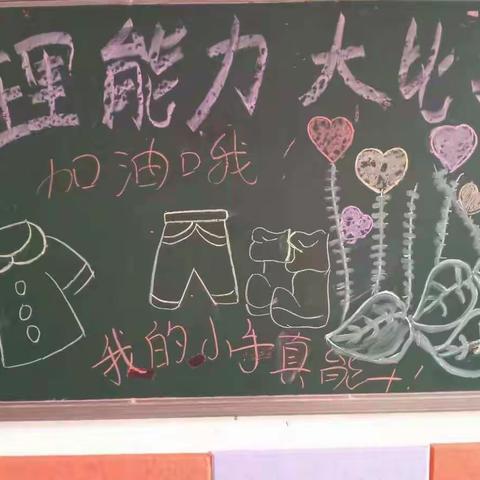 理能力大比
加油哦！
我的小手真能干！